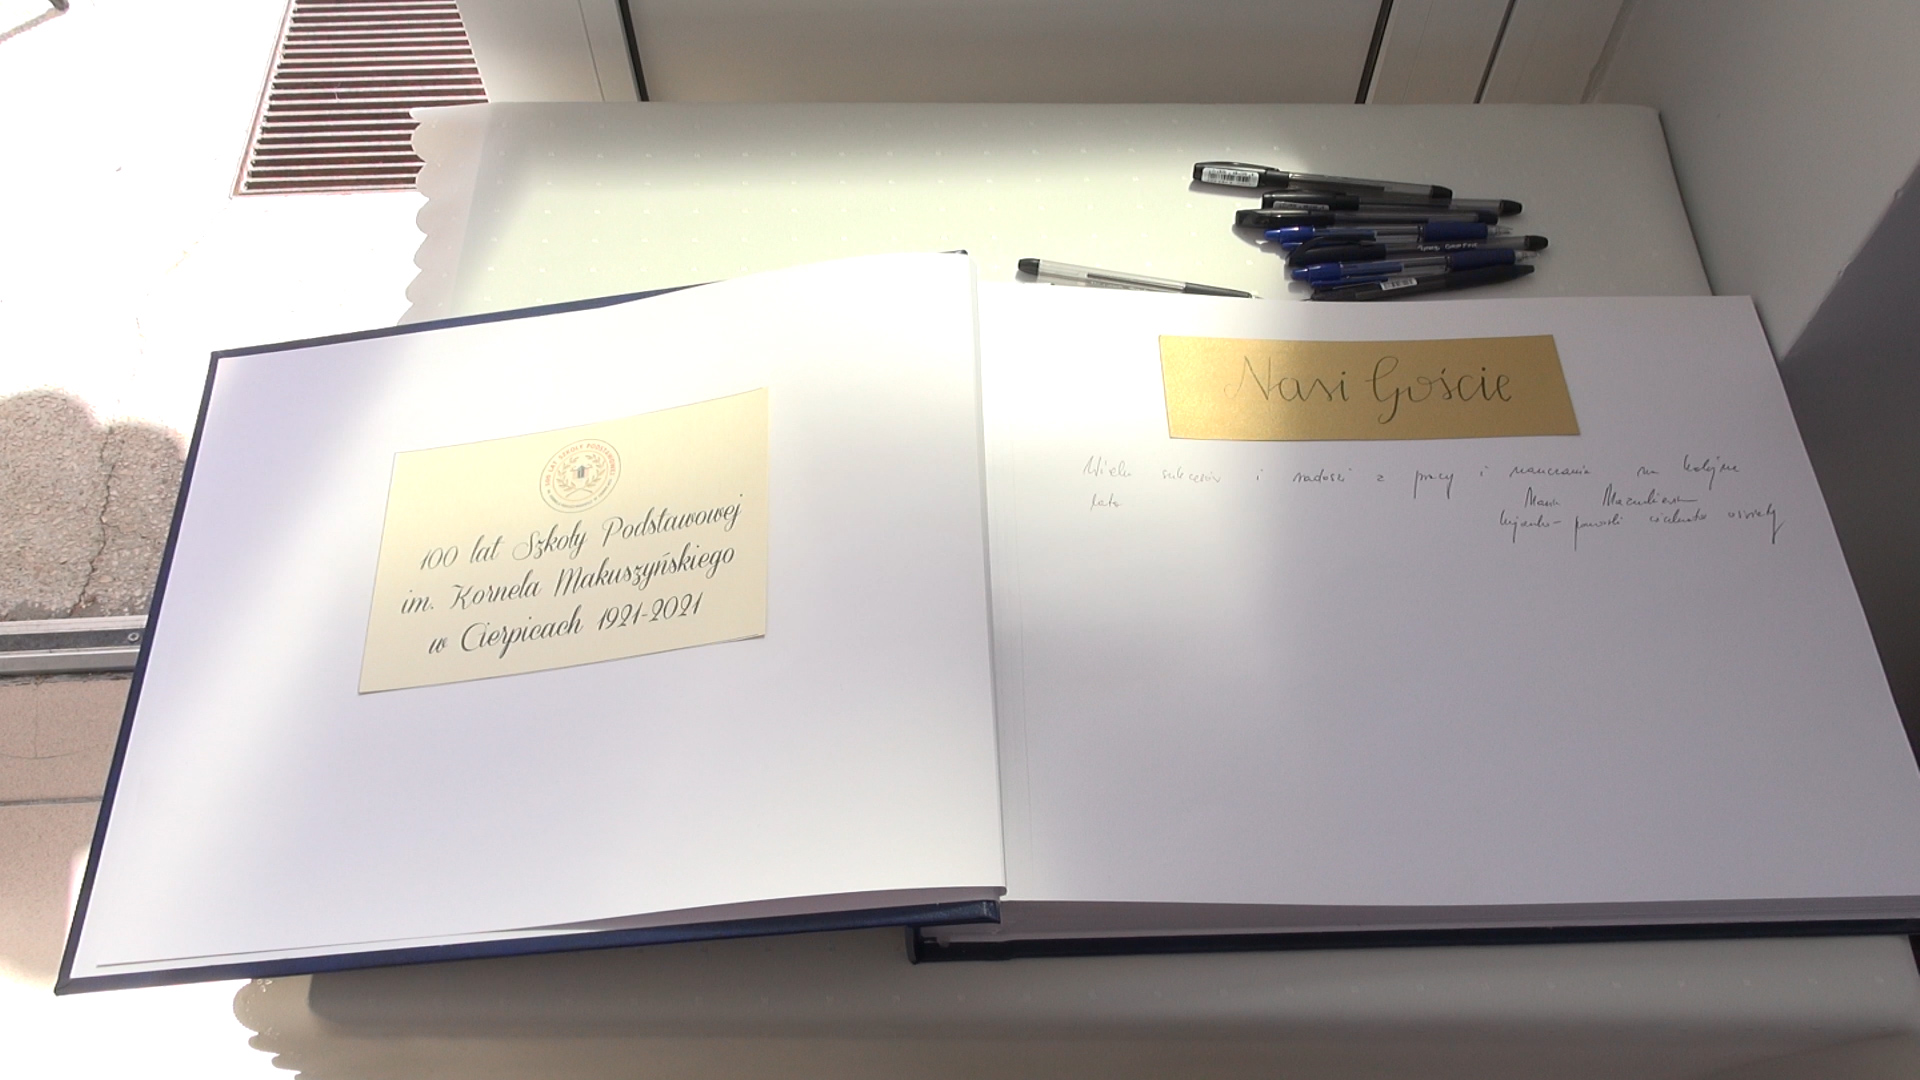 100 LAT SZKOŁY PODSTAWOWEJ
100 lat Szkoły Podstawowej
im. Kornela Makuszyńskiego
w Cierpicach 1921-2021
Nasi Goście
Wielu sukcesów i radości z pracy i nauczania na kolejne
lata
Marek
kujawsko-pomorski oświaty